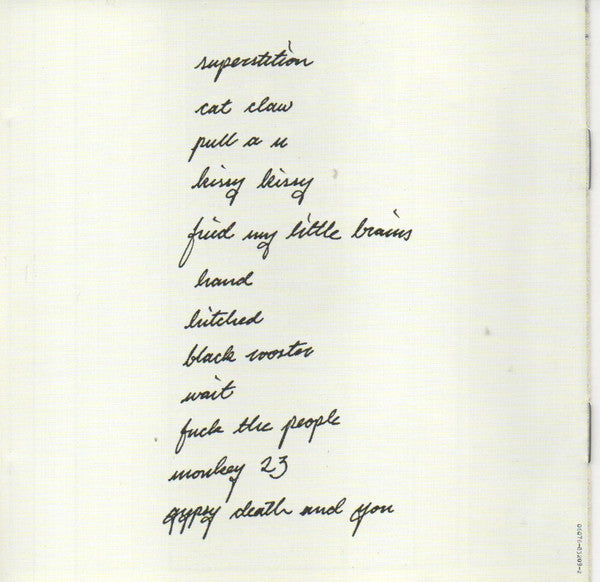 superstition
cat claw
pull a u
kissy kissy
fried my little brains
hand
hitched
black rooster
wait
fuck the people
monkey 23
gypsy death and you